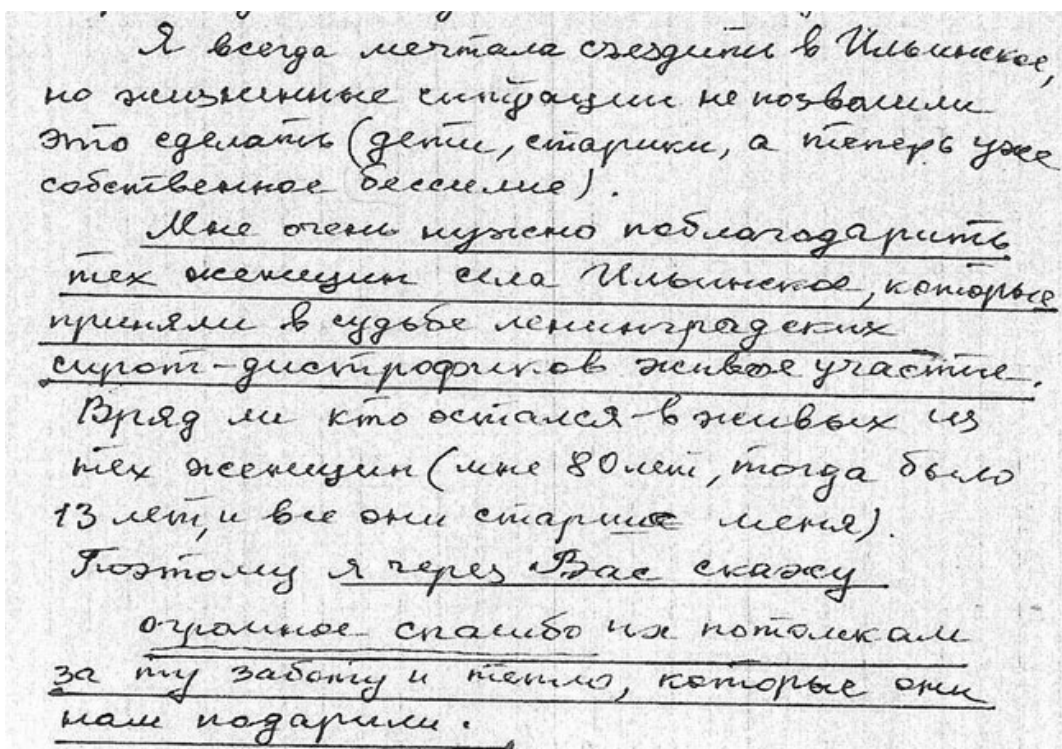 Я всегда мечтала съездить в Ильинское,
но жизненные ситуации не позволили
это сделать (дети, старики, а теперь уже
собственное бессилие).
Мне очень нужно поблагодарить
тех женщин села Ильинское, которые
приняли в судьбе ленинградских
сирот-дистрофиков живое участие.
Вряд ли кто остался в живых из
тех женщин (мне 80 лет, тогда было
13 лет, и все они старше меня).
Поэтому я через Вас скажу
огромное спасибо их потомкам
за ту заботу и тепло, которые они
нам подарили.